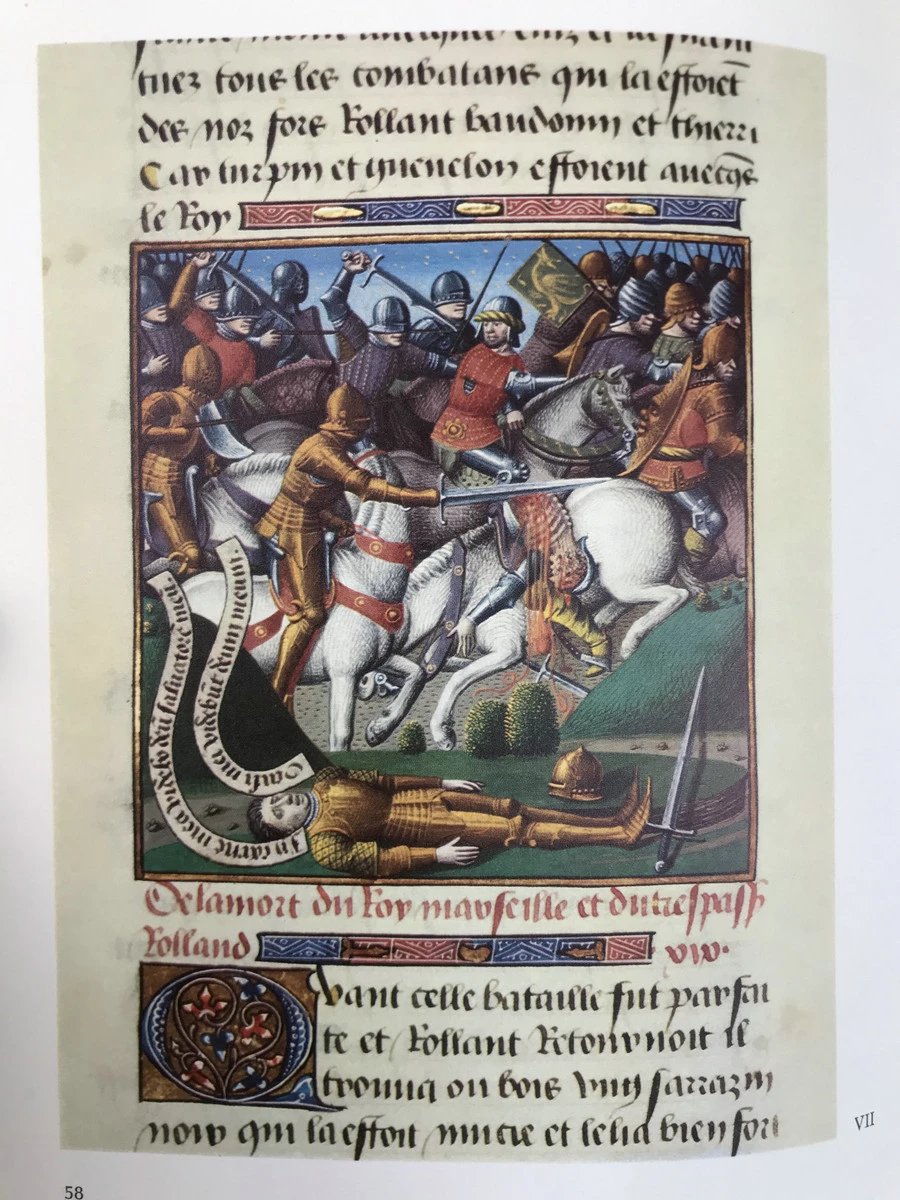 tuez tous les combatans qui la estoiēt
des noz fors Rollant baudouin et thierri
Car turpin et guenelon estoient auecq̄s
le Roy
In carne mea videbo deū saluatorē meū
Oculi mei videbūt deum meum
De la mort du Roy marseille et du trespass
Rolland viii.
Quant celle bataille fut parfai
te et Rollant Retournoit il
trouua ou bois vng sarrazin
noir qui la estoit mucie et le lia bien fort
VII
58